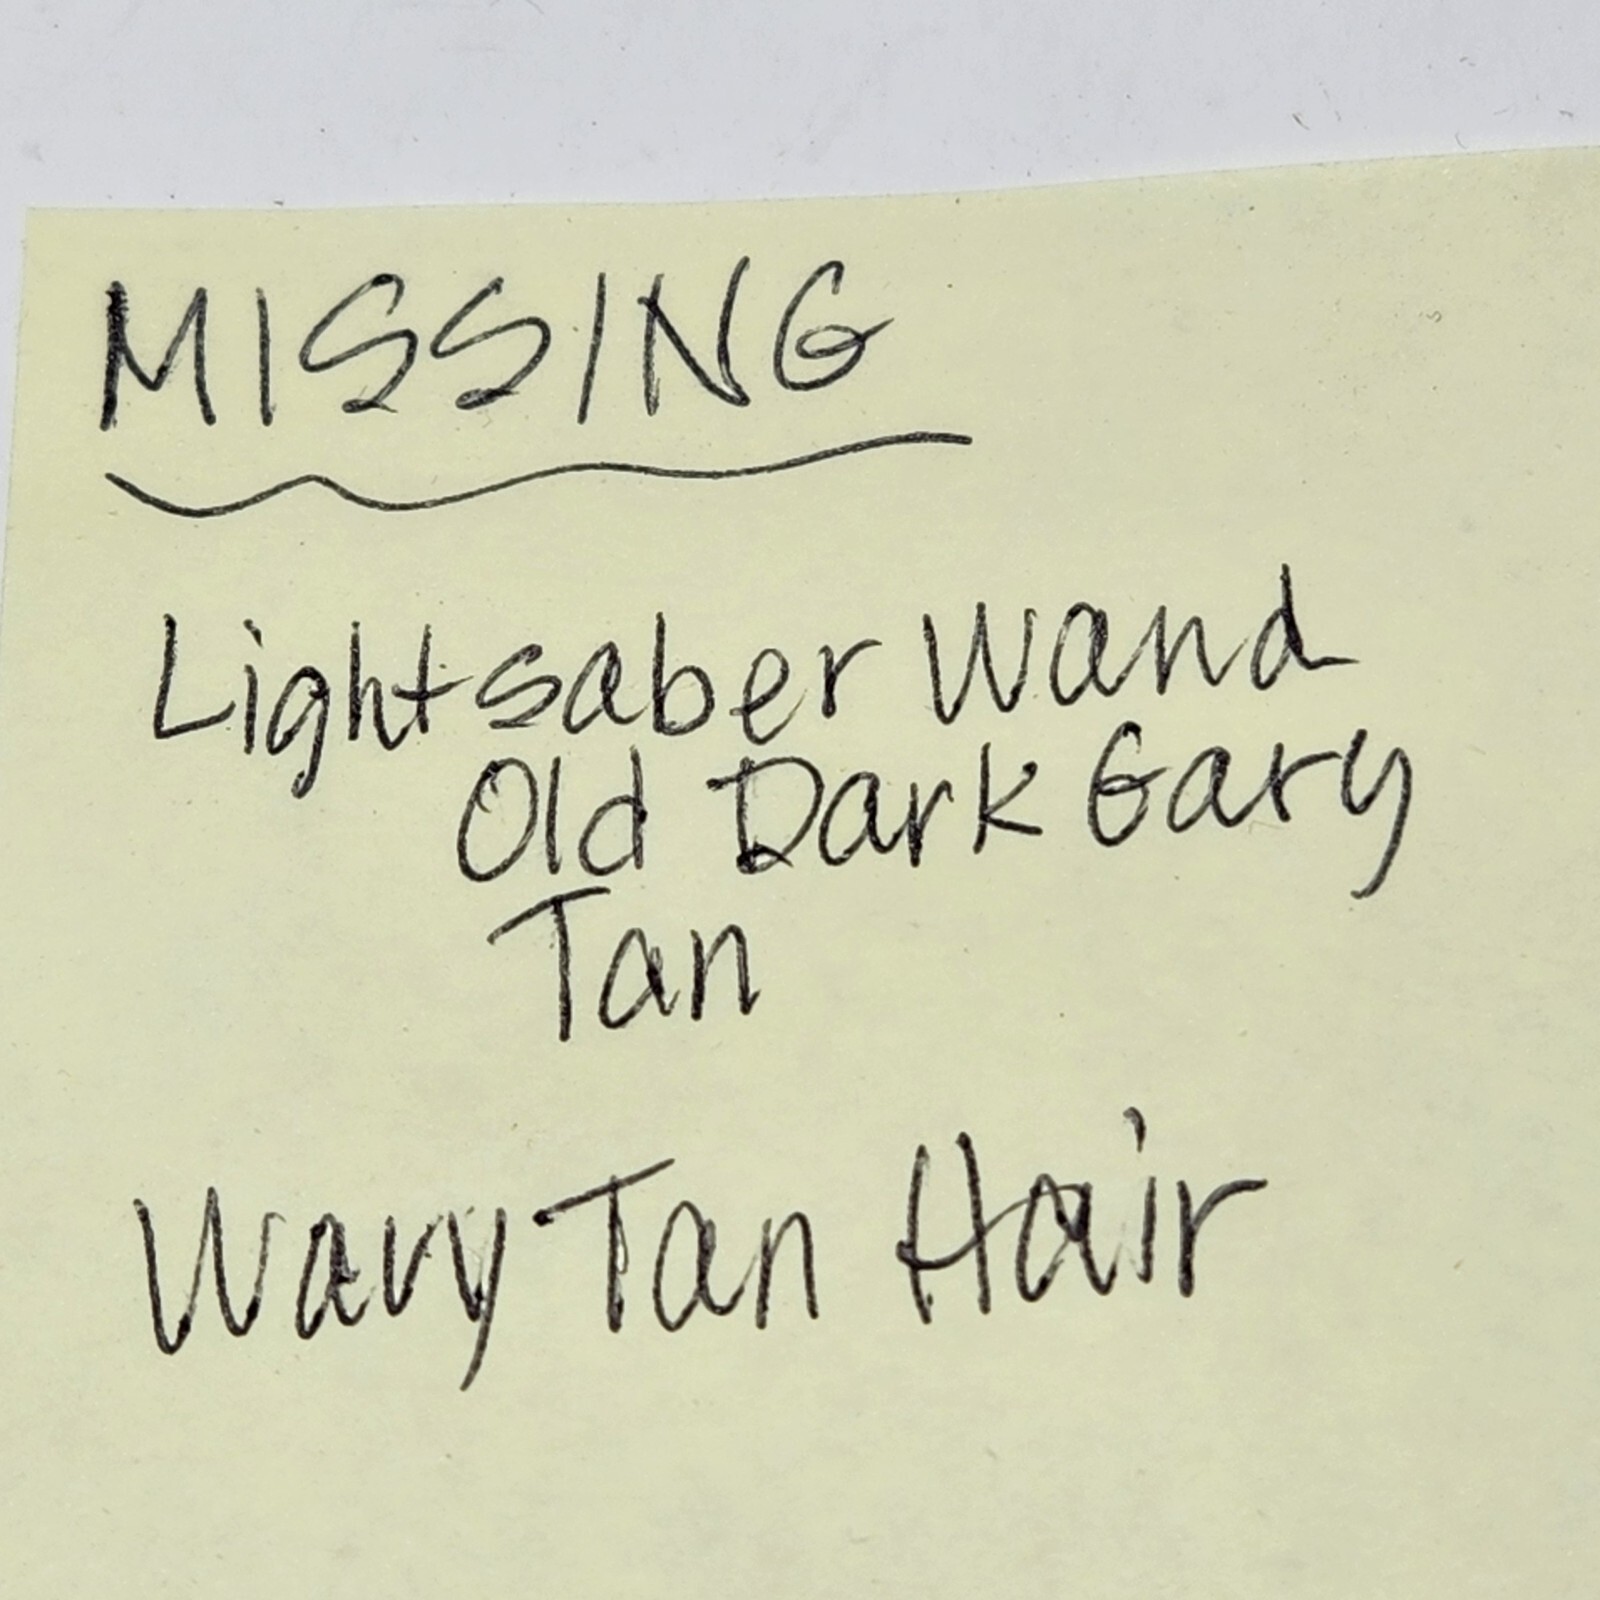 MISSING
Lightsaber Wand
Old Dark Gary
Tan
Wavy Tan Hair